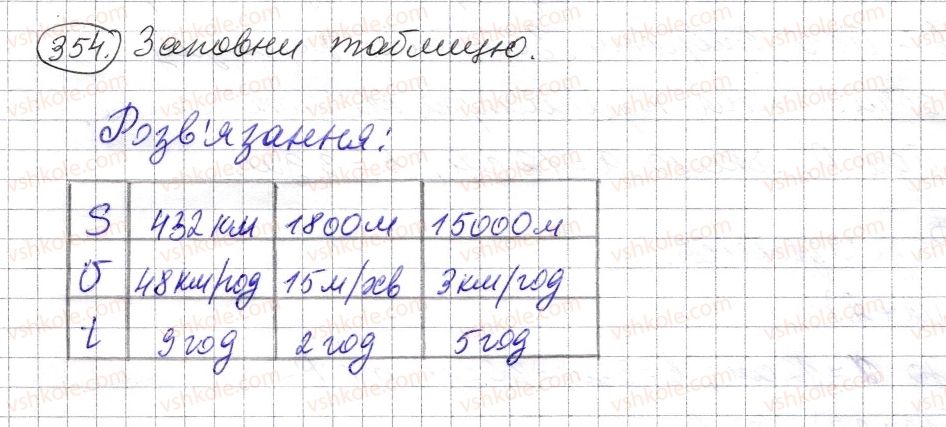 354. Заповни таблицю.
Розв'язання:
S 432 км 1800 м 15000 м
υ 48 км/год 15 м/хв 3 км/год
t 9 год 2 год 5 год